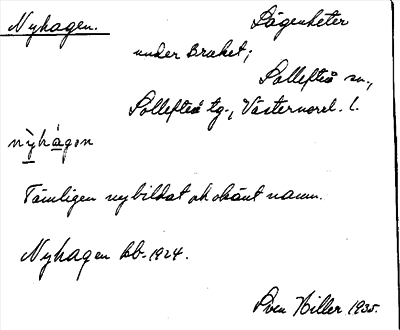 Nyhagen. Lägenheter
under Braket;
Sollefteå sn.,
Sollefteå tg., Västernorrl. l.
nỳhágən
Tämligen nybildat ock okänt namn.
Nyhagen kb. 1924.
Sven Hiller 1935.